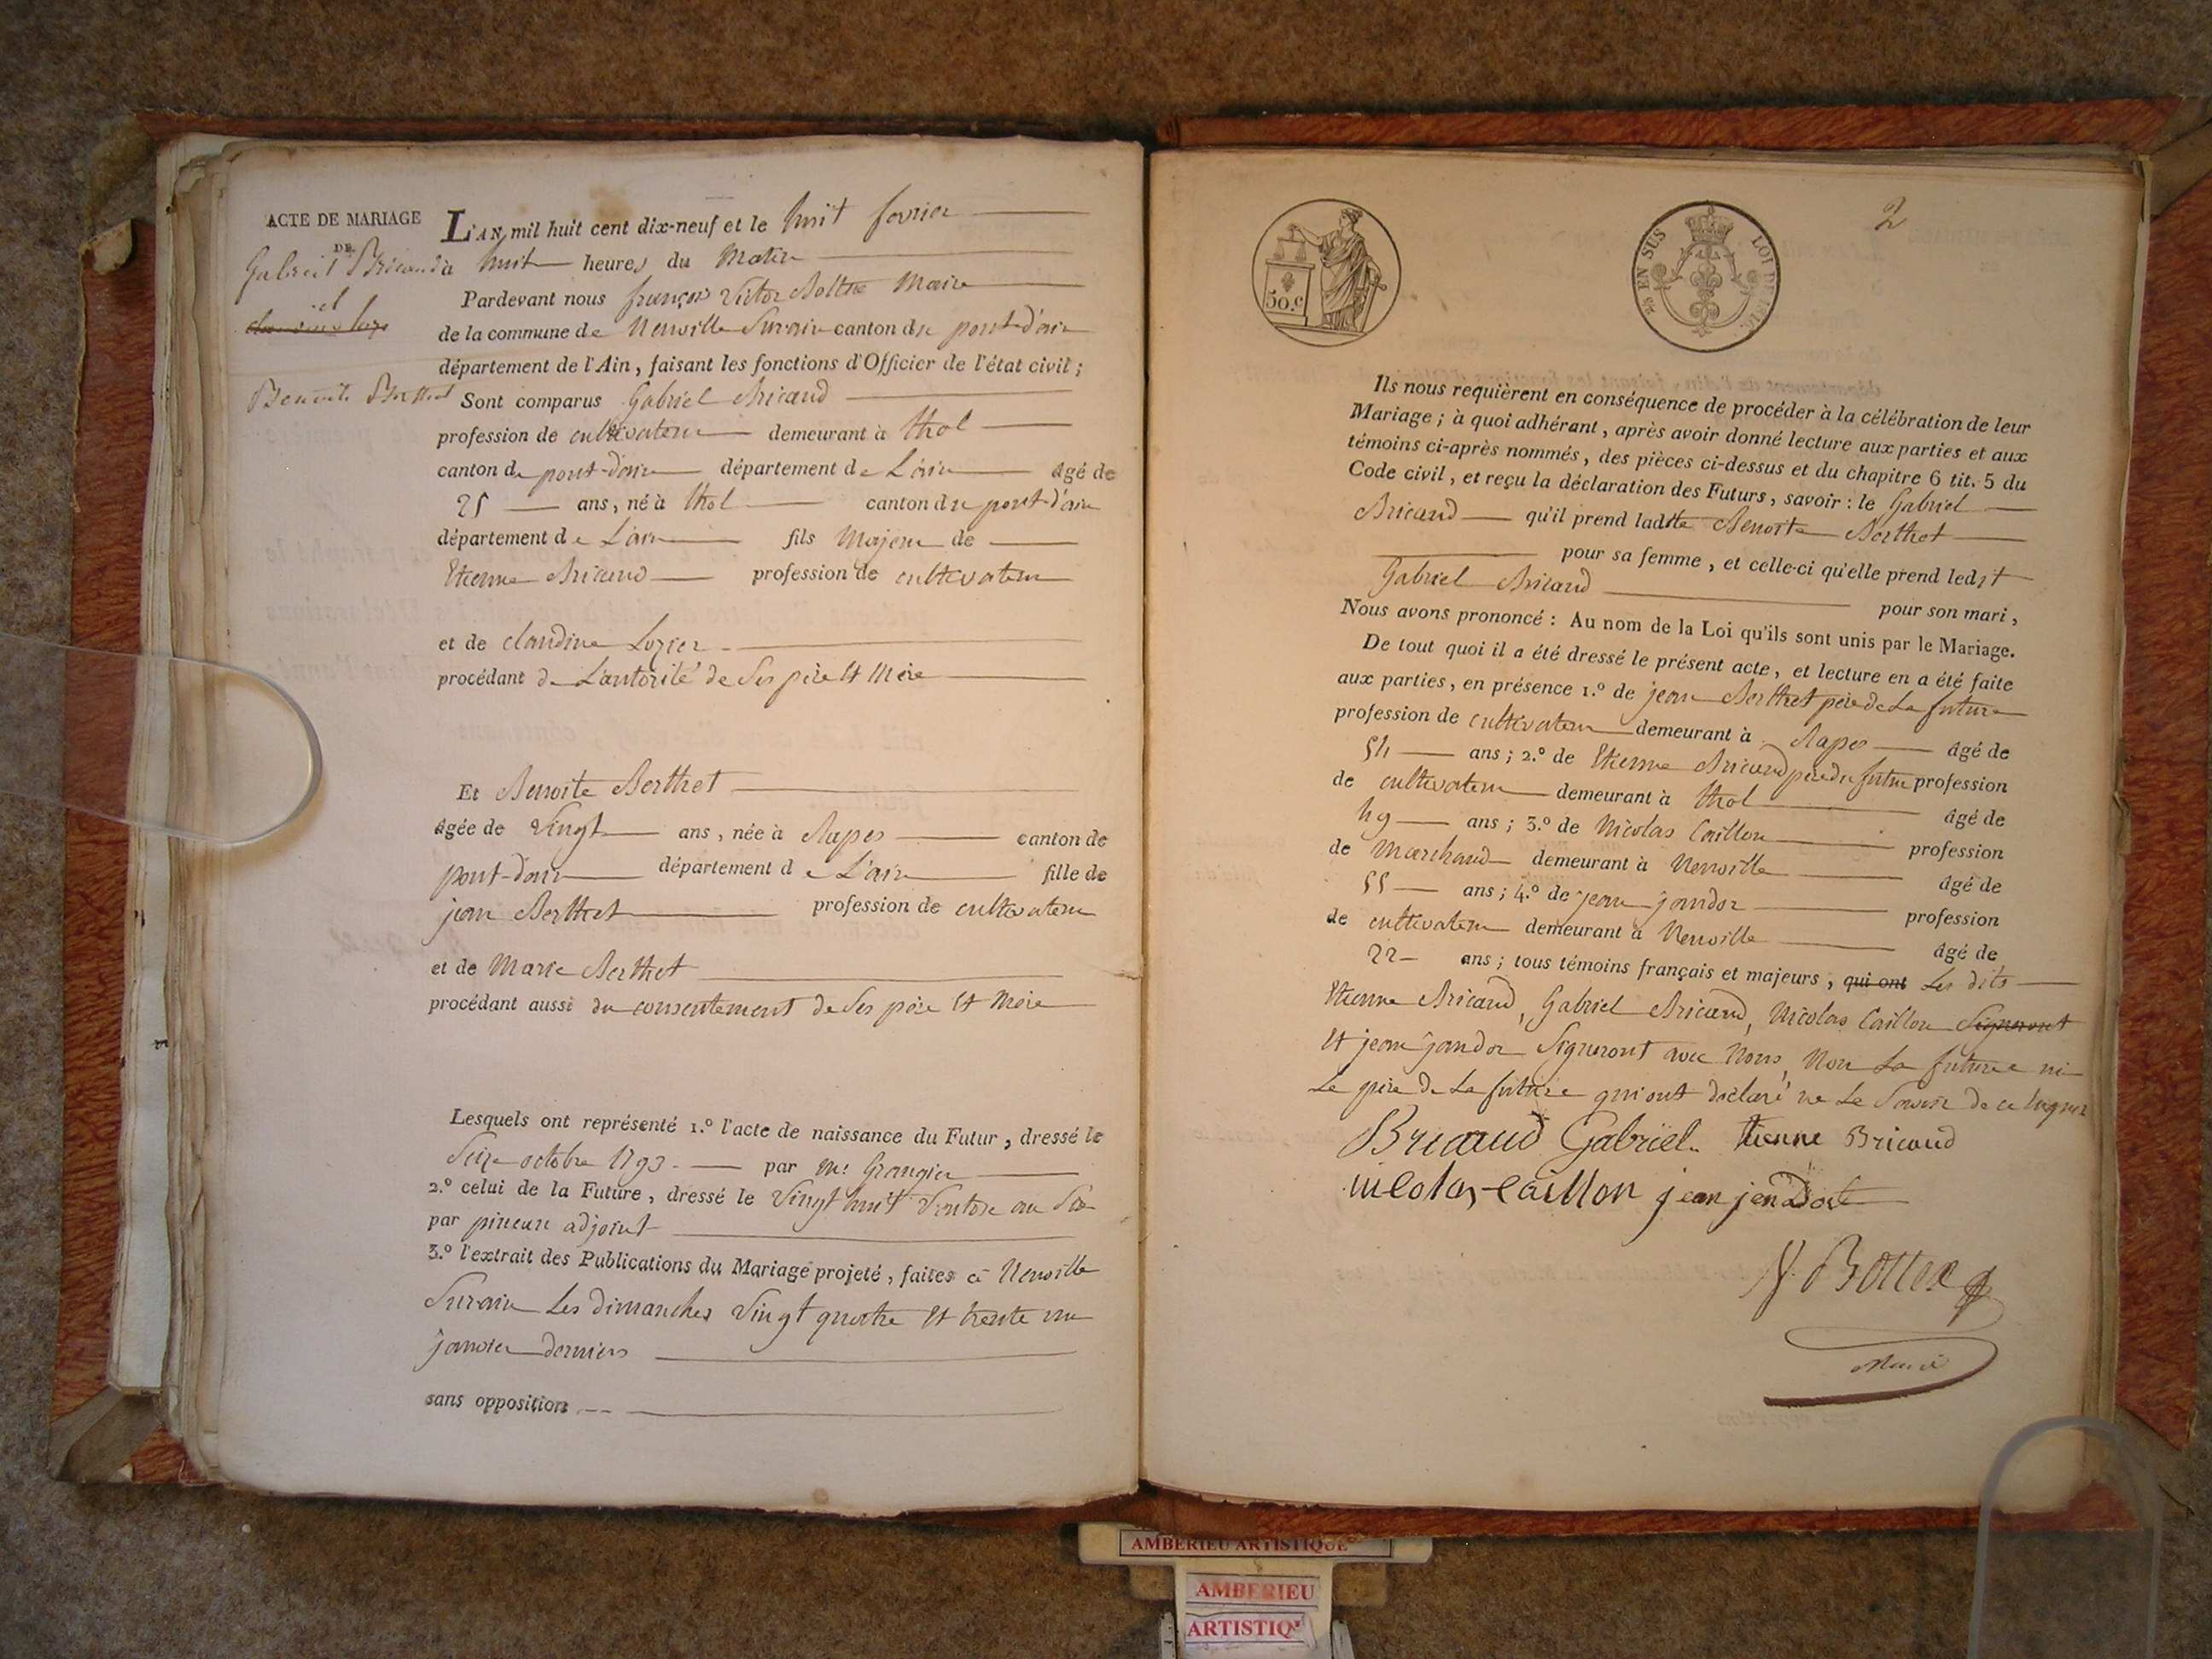 ACTE DE MARIAGE
DE
Gabriel Bricaud
et
Benoite Berthet
L'AN mil huit cent dix-neuf et le huit fevrier
à huit heures du Matin
Pardevant nous françois Victor Maire
de la commune de Neuville Surain canton du pont-d'ain
département de l'Ain, faisant les fonctions d'Officier de l'état civil;
Sont comparus Gabriel Bricaud
profession de cultivateur demeurant à thol
canton de pont-d'ain département de L'ain âgé de
25 ans, né à thol canton du pont-d'ain
département de L'ain fils Majeur de
Etienne Bricaud profession de cultivateur
et de claudine Lozier
procédant de L'autorité de Ses père et Mère
Et Benoite Berthet
âgée de Vingt ans, née à Rapes canton de
pont-d'ain département de L'ain fille de
jean Berthet profession de cultivateur
et de Marie Berthet
procédant aussi du consentement de Ses père et Mère
Lesquels ont représenté 1.º l'acte de naissance du Futur, dressé le
Seize octobre 1793. par Mr Grangier
2.º celui de la Future, dressé le Vingt huit Ventose an Six
par adjoint
3.º l'extrait des Publications du Mariage projeté, faites à Neuville
Surain Les dimanches Vingt quatre et trente un
janvier derniers
sans opposition
50.c
EN SUS LOI DE
2
Ils nous requièrent en conséquence de procéder à la célébration de leur
Mariage; à quoi adhérant, après avoir donné lecture aux parties et aux
témoins ci-après nommés, des pièces ci-dessus et du chapitre 6 tit. 5 du
Code civil, et reçu la déclaration des Futurs, savoir: le Gabriel
Bricaud qu'il prend ladite Benoite Berthet
pour sa femme, et celle-ci qu'elle prend ledit
Gabriel Bricaud pour son mari,
Nous avons prononcé: Au nom de la Loi qu'ils sont unis par le Mariage.
De tout quoi il a été dressé le présent acte, et lecture en a été faite
aux parties, en présence 1.º de jean Berthet père de La future
profession de cultivateur demeurant à Rapes âgé de
54 ans; 2.º de Etienne Bricaud père du futur profession
de cultivateur demeurant à thol âgé de
49 ans; 3.º de Nicolas Caillon profession
de Marchand demeurant à Neuville âgé de
55 ans; 4.º de jean jandor profession
de cultivateur demeurant à Neuville âgé de
22 ans; tous témoins français et majeurs, qui ont Les dits
Etienne Bricaud, Gabriel Bricaud, Nicolas Caillon Signeront
et jean jandor Signeront avec Nous, Non La future ni
Le père de La future qui ont déclaré ne Le Savoir de ce
Bricaud Gabriel. tienne Bricaud
nicolas caillon jean jendost
Maire
AMBERIEU ARTISTIQUE
AMBERIEU
ARTISTIQU